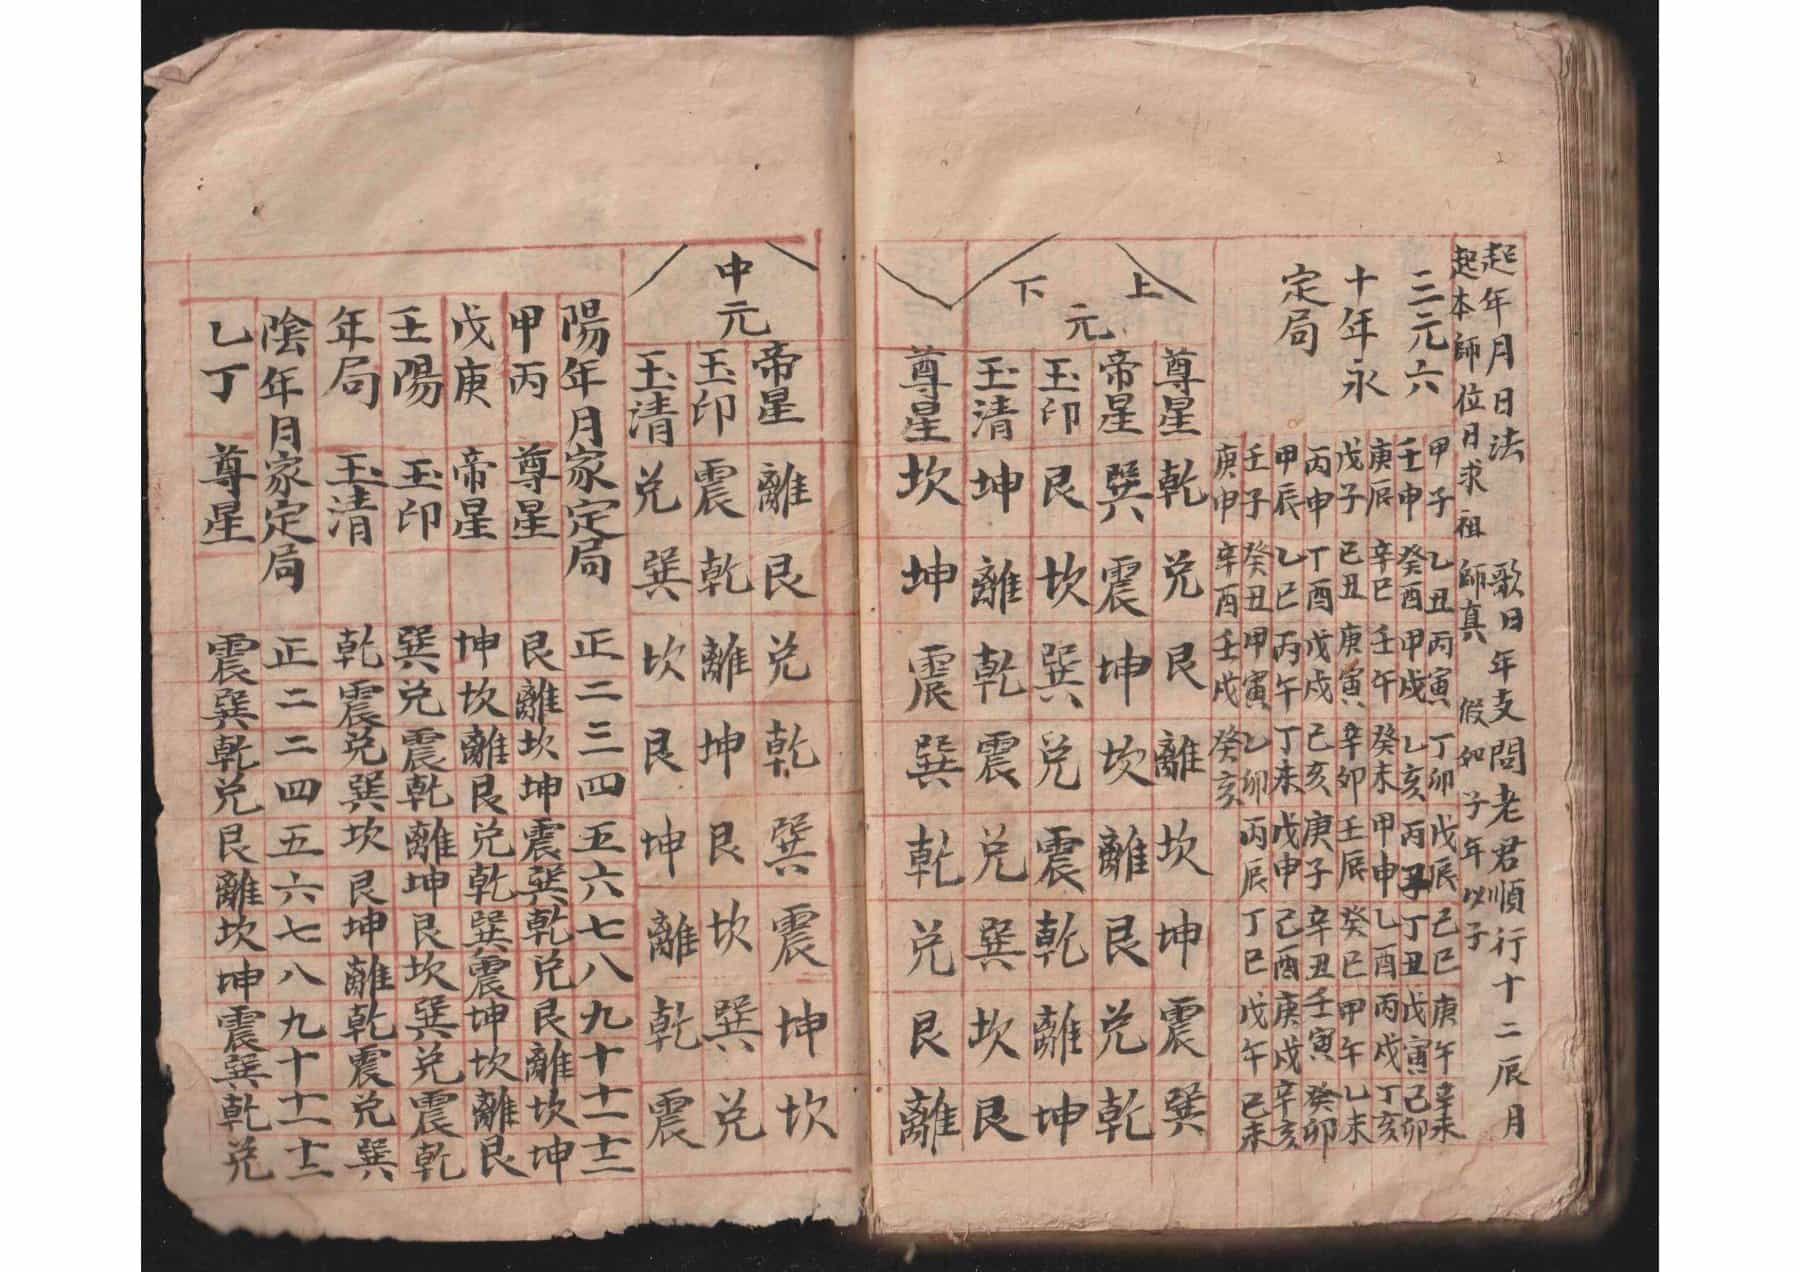 起年月日法 歌曰年支問老君順行十二辰月
起本師位月求祖師真 假如子年以子
三元六
十年永
定局
甲子 乙丑 丙寅 丁卯 戊辰 己巳 庚午 辛未
壬申 癸酉 甲戌 乙亥 丙子 丁丑 戊寅 己卯
庚辰 辛巳 壬午 癸未 甲申 乙酉 丙戌 丁亥
戊子 己丑 庚寅 辛卯 壬辰 癸巳 甲午 乙未
丙申 丁酉 戊戌 己亥 庚子 辛丑 壬寅 癸卯
甲辰 乙巳 丙午 丁未 戊申 己酉 庚戌 辛亥
壬子 癸丑 甲寅 乙卯 丙辰 丁巳 戊午 己未
庚申 辛酉 壬戌 癸亥
上
元
下
尊星 乾 兌 艮 離 坎 坤 震 巽
帝星 巽 震 坤 坎 離 艮 兌 乾
玉印 艮 坎 巽 兌 震 乾 離 坤
玉清 坤 離 乾 震 兌 巽 坎 艮
尊星 坎 坤 震 巽 乾 兌 艮 離
中元
帝星 離 艮 兌 乾 巽 震 坤 坎
玉印 震 乾 離 坤 艮 坎 巽 兌
玉清 兌 巽 坎 艮 坤 離 乾 震
陽年月家定局 正 二 三 四 五 六 七 八 九 十 十一 十二
甲丙 尊星 艮 離 坎 坤 震 巽 乾 兌 艮 離 坎 坤
戊庚 帝星 坤 坎 離 艮 兌 乾 巽 震 坤 坎 離 艮
壬陽 玉印 巽 兌 震 乾 離 坤 艮 坎 巽 兌 震 乾
年局 玉清 乾 震 兌 巽 坎 艮 坤 離 乾 震 兌 巽
陰年月家定局 正 二 三 四 五 六 七 八 九 十 十一 十二
乙丁 尊星 震 巽 乾 兌 艮 離 坎 坤 震 巽 乾 兌